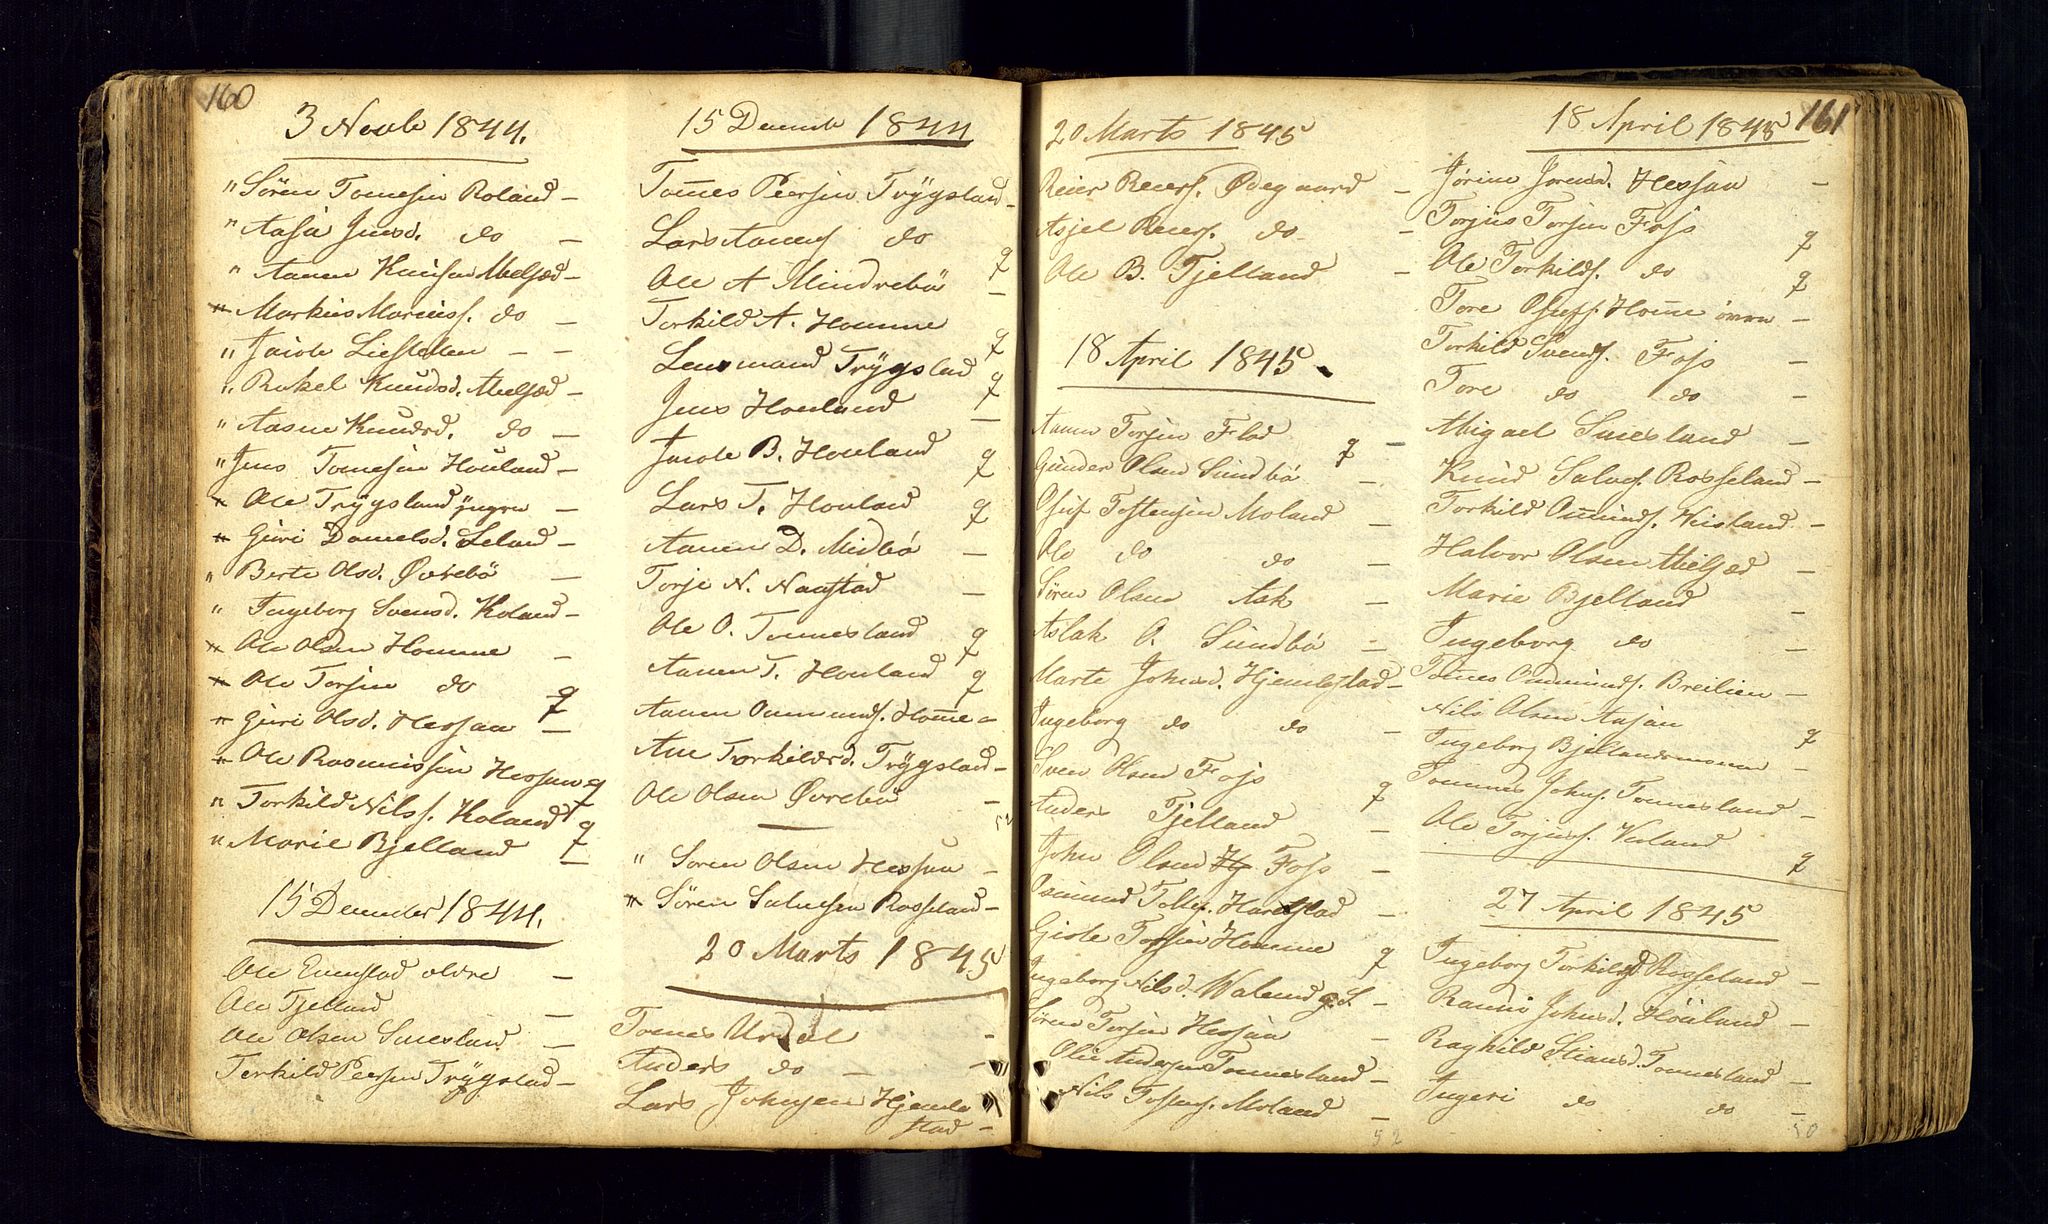 160
3 Novbr 1844.
" Søren Tomesen Roland –
" Aasa Jensd. do –
" Aanen Knusen Mielsæd –
" Markus Mariuss. do –
" Jacob Liestøllen – –
" Rakel Knudsd. Mielsæd –
" Aasne Knudsd. do –
" Jens Tomesen Houland –
" Ole Trygsland yngre –
" Guri Danielsd. Leland –
" Berte Olsd. Øvrebø –
" Ingeborg Svensd. Roland –
" Ole Olsen Homme –
" Ole Torjsen do q
" Guri Olsd. Hessaa –
" Ole Rasmussen Hessaa q
" Torkild Nilss. Roland q
" Marie Bjelland q
15 December 1844.
Ole Evenstad ældre –
Ole Tjelland –
Ole Olsen Suesland –
Torkild Peersen Trygslad –
15 Decemb 1844
Tomes Peersen Trygsland –
Lars Aanens do q
Ole A Mindrebø –
Torkild A. Homme q
Lensmand Trygsland q
Jens Houland –
Jacob B. Houland q
Lars T. Houland q
Aanen D. Midbø –
Torje N. Naustad –
Ole O. Tonnesland q
Aanen T. Houland q
Aanen Ommunds. Home –
Ane Torkildsd. Trygsland –
Ole Olsen Øvrebø –
" Søren Olsen Hessaa –
" Søren Salvesen Rosseland –
20 Marts 1845
Tomes Urdal –
Anders do – –
Lars Johnsen Hjemle
stad –
161
20 Marts 1845
Reier Reiers. Ødegaard –
Asjel Reiers. do –
Ole B. Tjelland –
18 April 1845
Aanen Torjsen Flad q –
Gunder Olsen Sundbø –
Osuf Tostensen Moland –
Ole do do –
Søren Olsen Ask –
Aslak O. Sundbø –
Marte Johnsd. Hjemlestad –
Ingeborg do do –
Sven Olsen Foss q
Anders Tjelland –
John Olsen Foss –
Osmund Tollefs. Harestad –
Gisle Torjsen Homme q
Ingeborg Nilsd. Waland –
Søren Torjsen Hessaa –
Olie Andersen Tonnesland –
Nils Tostens. Moland –
52
18 April 1845
Jørine Jorensd. Hessaa –
Torjus Torjsen Foss q
Ole Torkilds. do q
Tore Osufs. Home øvre –
Torkild Svends. Foss –
Tore do do –
Abigael Suesland –
Knud Salves. Rosseland –
Torkild Ommunds. Uisland –
Halvor Olsen Mielsæd –
Marie Bjelland –
Ingeborg do –
Tomes Ommunds. Breilien –
Nils Olsen Aasan q
Ingeborg Bjellandsmoen –
Tommes Johns. Tonnesland –
Ole Torjuss. Verland q
27 April 1845
Ingeborg Torkildsd Rosseland –
Randi Johnsd. Høiland –
Raghild Stiansd. Tonnesland –
Ingeri do do –
50